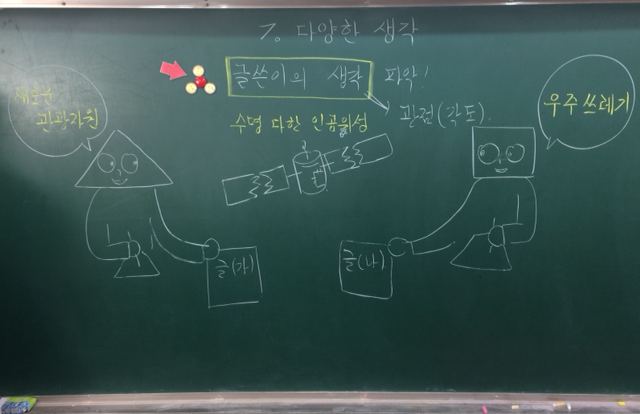 7. 다양한 생각
글쓴이의 생각 파악!
관점(각도).
새로운
관광자원
수명 다한 인공위성
우주 쓰레기
글(가)
글(나)